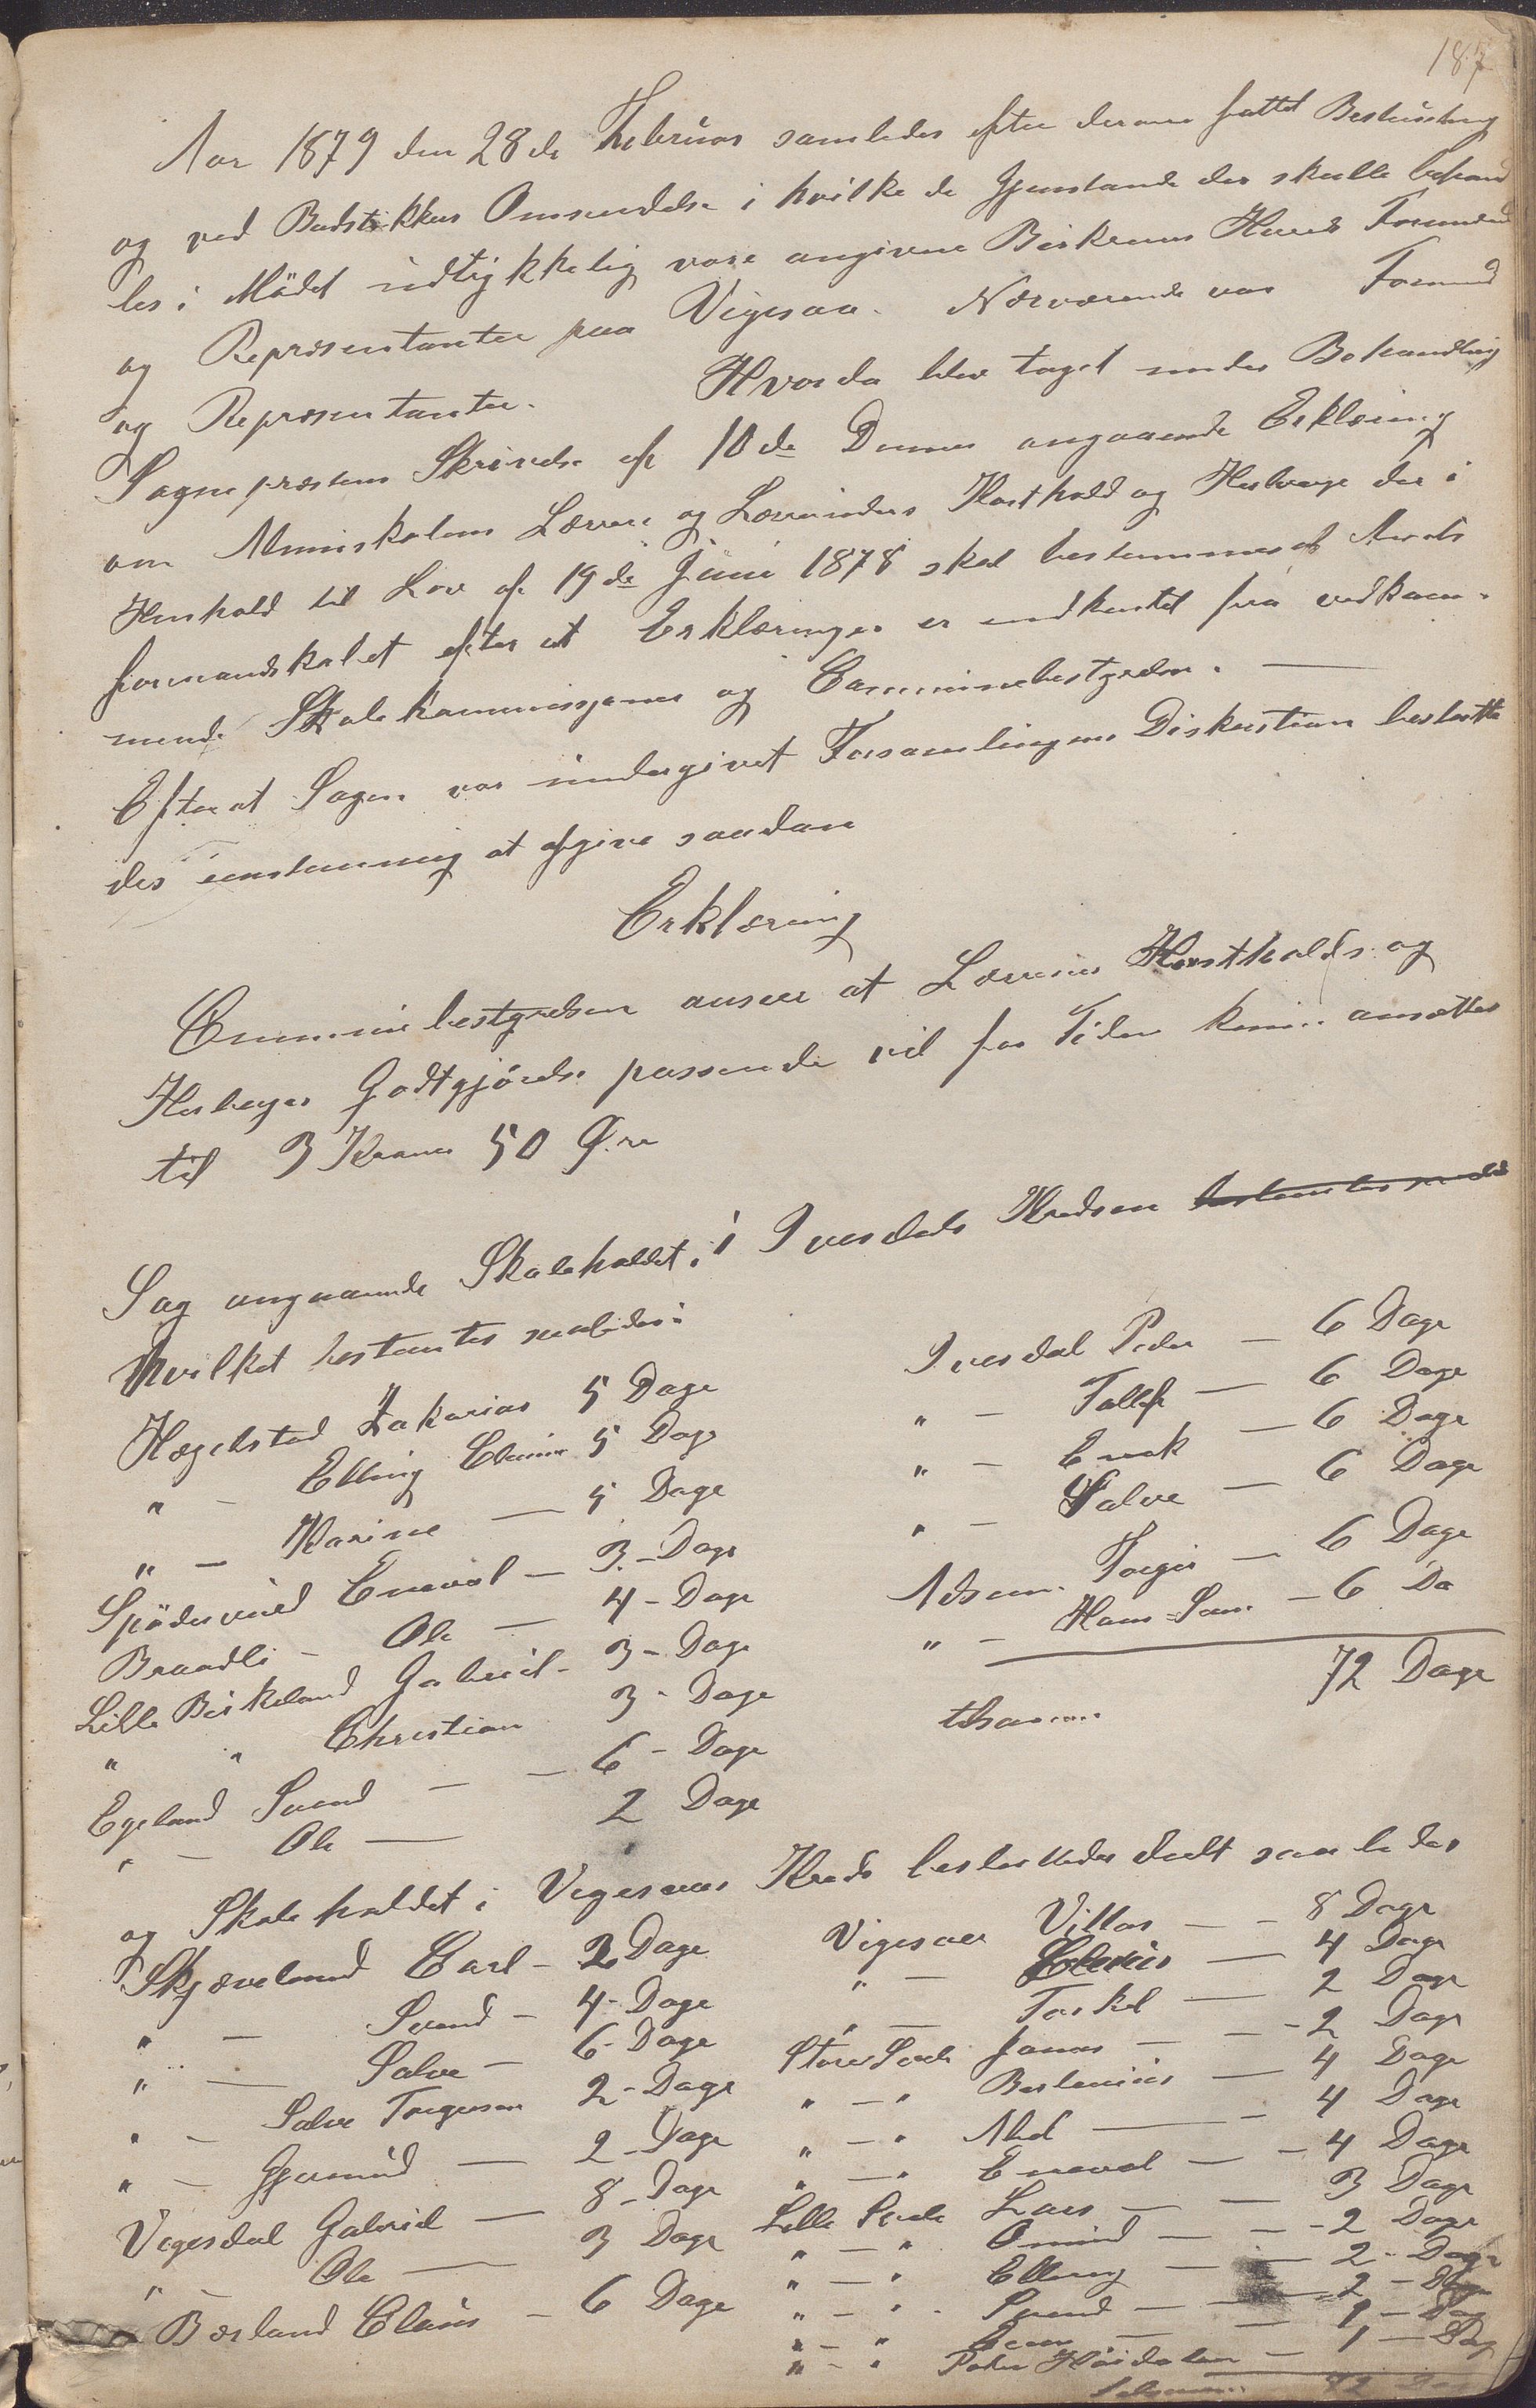 187
Aar 1879 den 28de Februar samledes efter derom fattet Beslutning
og ved Budstikkes Omsendelse i hvilke de Gjenstande der skulle behand
les i Mødet udtrykkelig vare angivne Birkrems Herreds Formænd
og Repræsentanter paa Vigesaa. Nærværende var Formænd
og Repræsentanter. Hvorda blev taget under Behandling
Sognepræstens Skrivelse af 10de Dennes angaaende Erklæring
om Almuskolens Lærere og Lærerinders Kosthold og Herberge der i
Henhold til Lov af 19de Juni 1878 skal bestemmes af Amts
formandskabet efter at Erklæringer er indhentet fra vedkom-
mende Skolekommissjoner og Communebestyrelse.
Efterat Sagen var undergivet Forsamlingens Diskustion beslutte
des enstemmig at afgive saadan
Erklæring
Communebestyrelsen anseer at Lærernes Kostholds og
Herberges Godtgjørelse passende vil for Tiden kunne ansættes
til 3 Kroner 50 Øre
Sag angaaende Skoleholdet i Ivesdals Kredsen bestemtes saaledes
hvilket bestemtes saaledes:
Hægelstad Zakarias 5 Dage
" - Elling Elaine 5 Dage
" - Karine - 5 Dage
Spødervold Enevol - 3 - Dage
Braadli - Ole - 4 - Dage
Lille Birkeland Gabriel - 3 - Dage
" " Christian 3 - Dage
Egeland Svend - - 6 - Dage
" - Ole - 2 Dage
Ivesdal Peder - 6 Dage
" - Tollef - 6 Dage
" - Enok - 6 Dage
" - Salve - 6 Dage
Adsem. Torger - 6 Dage
" - Hans Sem - 6 Da
tilsammen 72 Dage
og Skoleholdet i Vigesaas Kreds besluttedes deelt saaledes
Skjævelund Carl - 2 Dage
" - Svend - 4 - Dage
" - Salve - 6 - Dage
" - Salve Torgersen 2 - Dage
" - Gjermund - 2 - Dage
Vigesdal Gabriel - 8 - Dage
" - Ole - 3 Dage
Bærland Claus - 6 Dage
Vigesaa Villas - - 8 Dage
" - - 4 Dage
" - Torkel - 2 Dage
Store Svela Jonas - - - 2 Dage
" - " Bertenius - 4 Dage
" - " Abel - - 4 Dage
" - " Enevol - - 4 Dage
Lille Svela Lars - - 3 Dage
" - " Omund - - - 2 Dage
" - " Elling - - 2 - Dage
" - " - Svend - - - 2 - Dage
" - " - - 1 - Dag
" - " Peder Høidalen - 1 - Dag
tilsammen 72 Dage